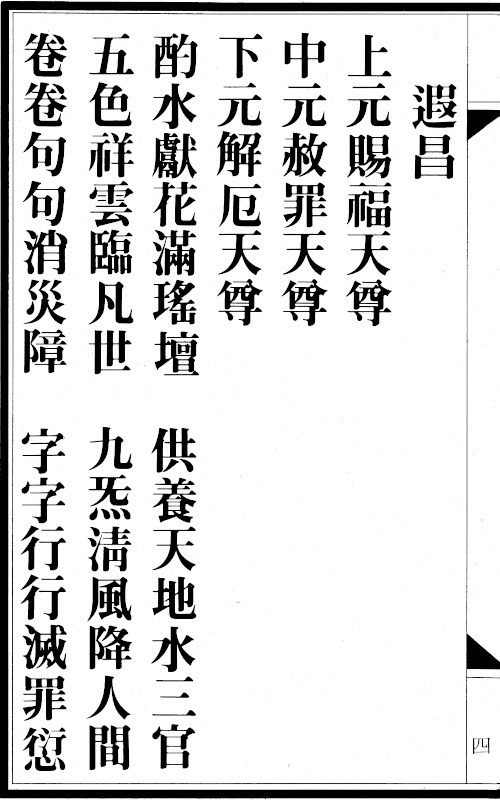 遐昌
上元賜福天尊
中元赦罪天尊
下元解厄天尊
酌水獻花滿瑤壇　供養天地水三官
五色祥雲臨凡世　九炁淸風降人間
卷卷句句消災障　字字行行滅罪愆
四